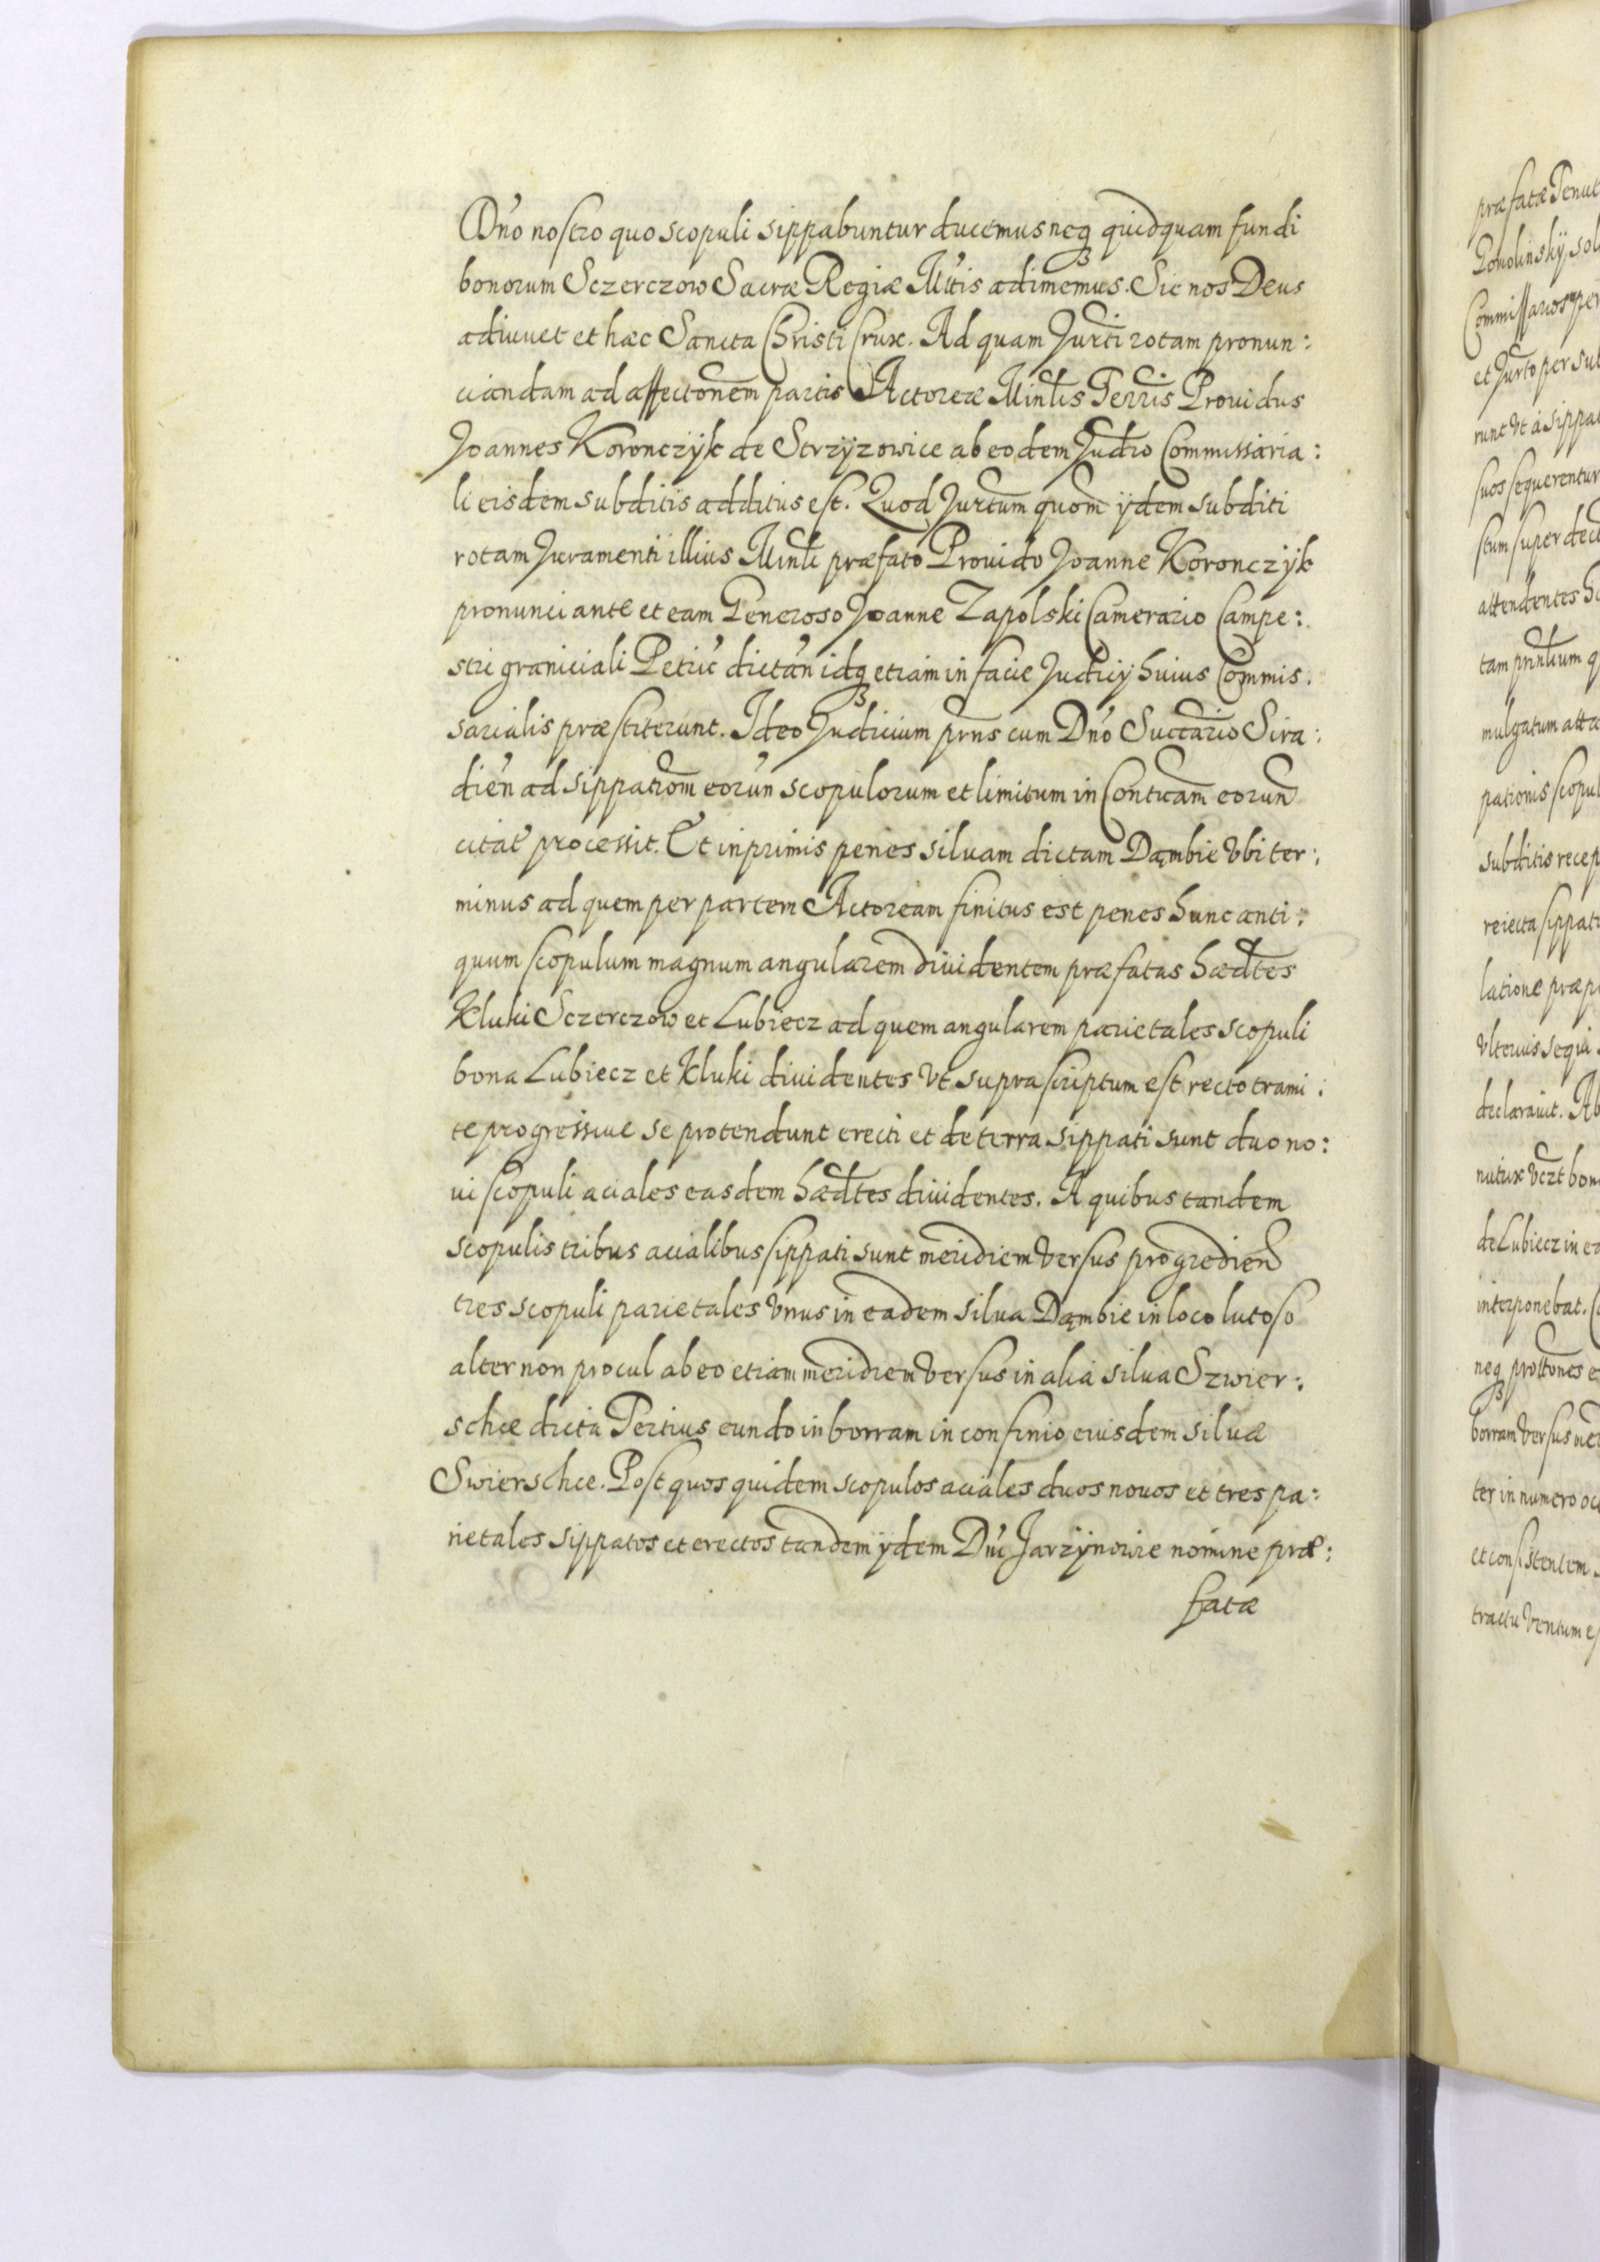 Dn̄o nostro quo scopuli sippabuntur ducemus neqꝫ quidquam fundi
bonorum Sczerczow Sacræ Regiæ Mtis adimemus. Sic nos Deus
adiuvet et hæc Sancta Christi Crux. Ad quam Jurti rotam pronun:
ciandam ad affectōnem partis Actoreæ Minlis Terrīs Providus
Joannes Koronczÿk de Strzÿzowice ab eodem Judio Commissaria:
li eisdem subditis additus est. Quod Jurtum quom̄ ÿdem subditi
rotam Juramenti illius Minli præfato Provido Joanne Koronczÿk
pronunciante et eam Generoso Joanne Zapolski Camerario Campe:
stri graniciali Petric̄ dictan̄ idqꝫ etiam in facie Judicÿ huius Commis.
sarialis præstiterunt. Ideo Judicium prn̄s cum Dn̄o Succārio Sira:
dien̄ ad sippatiōm eorun̄ scopulorum et limitum in Contuam̄ eorun̄
citat̄ processit. Et inprimis penes silvam dictam Dąmbie Vbi ter:
minus ad quem per partem Actoream finitus est penes hunc anti:
quum scopulum magnum angularem dividentem præfatas hædtes
Kluki Sczerczow et Lubiecz ad quem angularem parietales scopuli
bona Lubiecz et Kluki dividentes Vt supra scriptum est recto trami:
te progressive se protendunt erecti et de terra sippati sunt duo no:
vi scopuli aciales easdem hædtes dividentes. A quibus tandem
scopulis tribus acialibus sippati sunt meridiem Versus progredien̄
tres scopuli parietales Vnus in eadem silva Dąmbie in loco lutoso
alter non procul ab eo etiam meridiem Versus in alia silva Szwier:
schce dicta Tertius eundo in borram in confinio eiusdem silvæ
Swierschce. Post quos quidem scopulos aciales duos novos et tres pa:
rietales sippatos et erectos tandem ÿdem Dn̄i Jarzÿnowie nomine præ:
fatæ
præfatæ Tenut
Commissarios per
et Jurto per sub
runt Vt a sippa
suos sequerentur
stum super dec
attendentes h
tam prn̄lium q
mulgatum atta
pationis scopul
subditis recep
reiecta sippati
latione præp
Vlterius sequi
declaravit. Ab
de Lubiecz in e
interponebat.
neqꝫ
borram Versus me
ter in numero oc
et consistentem
tractu Ventum es